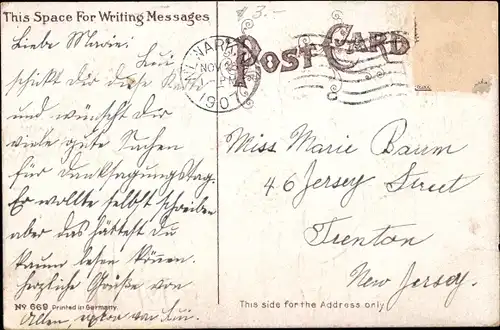 This Space For Writing Messages
POST CARD
3.-
NEWARK
NOV
1907
Liebe Marie!
schickt dir diese Karte
und wünscht dir
viele gute Sachen
für Danksagungstag.
Er wollte selbst schreiben
aber das hättest du
kaum lesen können.
herzliche Grüße von
Allen,
Miss Marie Baum
46 Jersey Street
Trenton
New Jersey.
No 669 Printed in Germany.
This side for the Address only